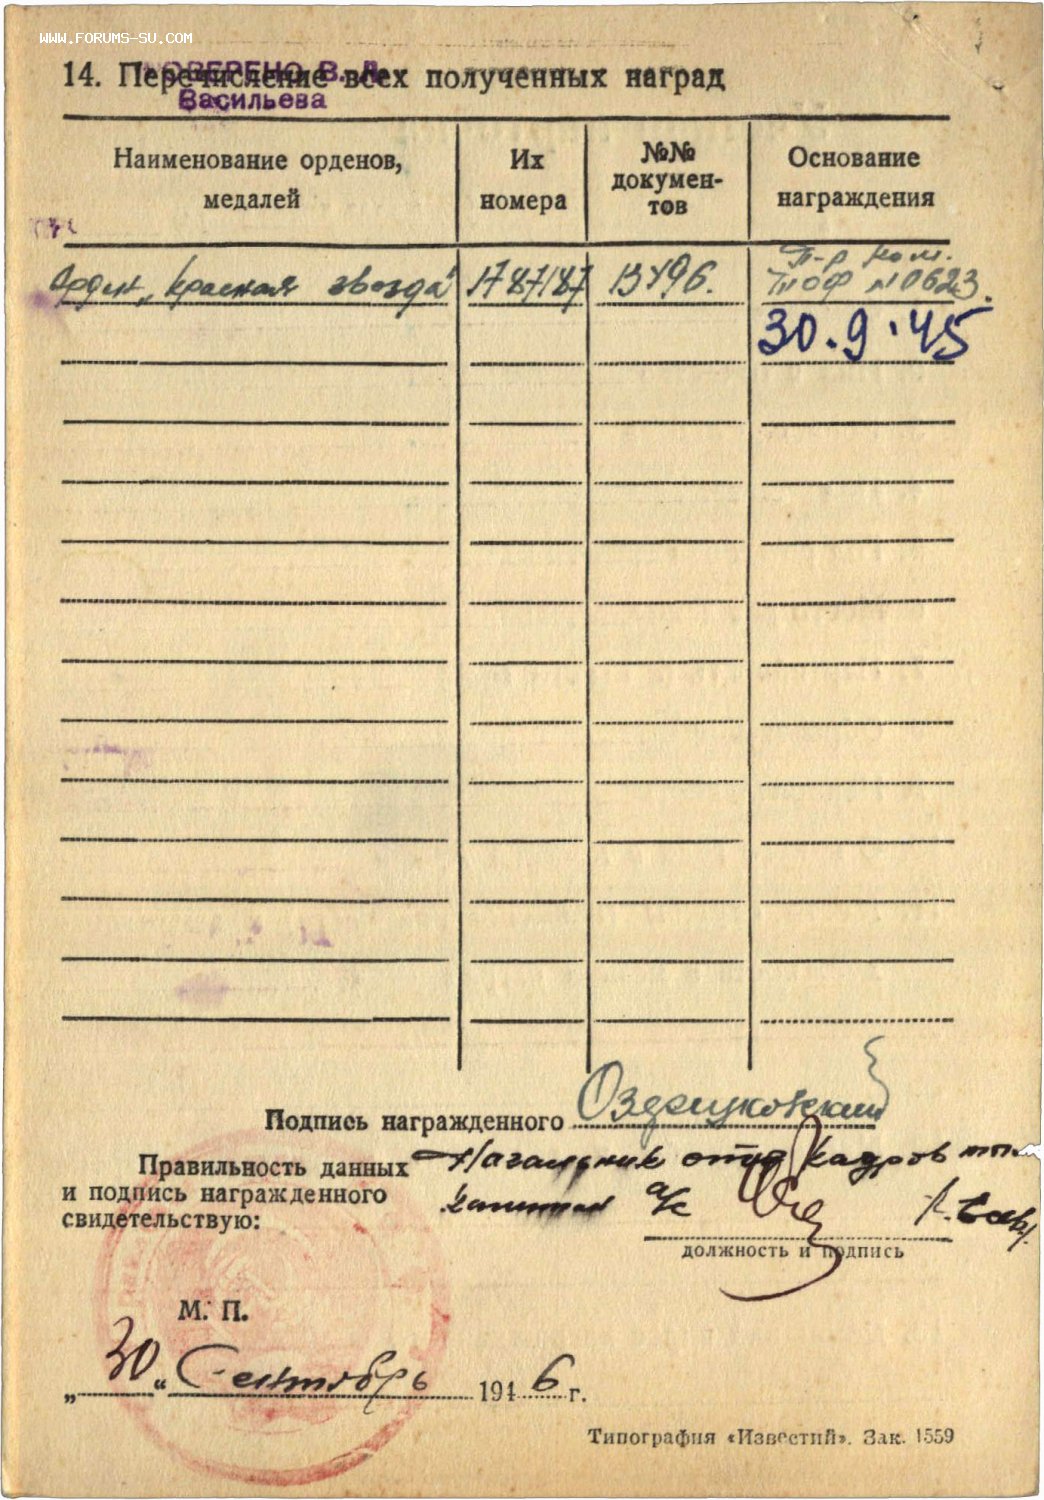 WWW.FORUMS-SU.COM
14. Перечисление всех полученных наград
ПРОВЕРЕНО В. А.
Васильева
Наименование орденов, медалей
Их номера
№№ докумен-тов
Основание награждения
Орден „Красная звезда“ 1787187
Пр. Ком.
ТОФ №0623.
30.9.45
Подпись награжденного
Правильность данных Начальник отд кадров
и подпись награжденного капитан а/с
свидетельствую:
должность и подпись
М. П.
„30“ Сентябрь 1946 г.
Типография «Известий». Зак. 1559